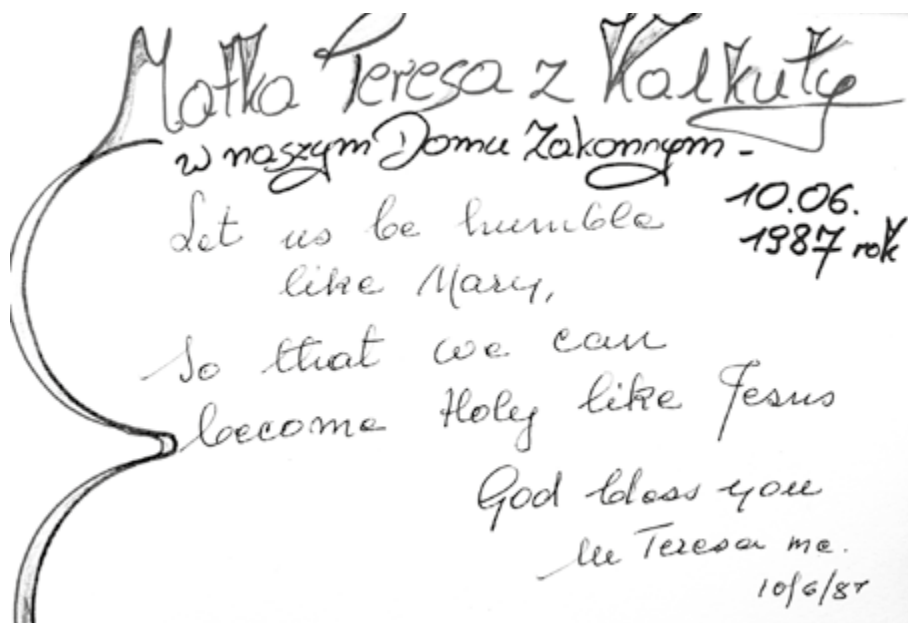 Matka Teresa z Kalkuty
w naszym Domu Zakonnym -
10.06.
1987 rok
Let us be humble
like Mary,
So that we can
become Holy like Jesus
God bless you
M Teresa mc.
10/6/87